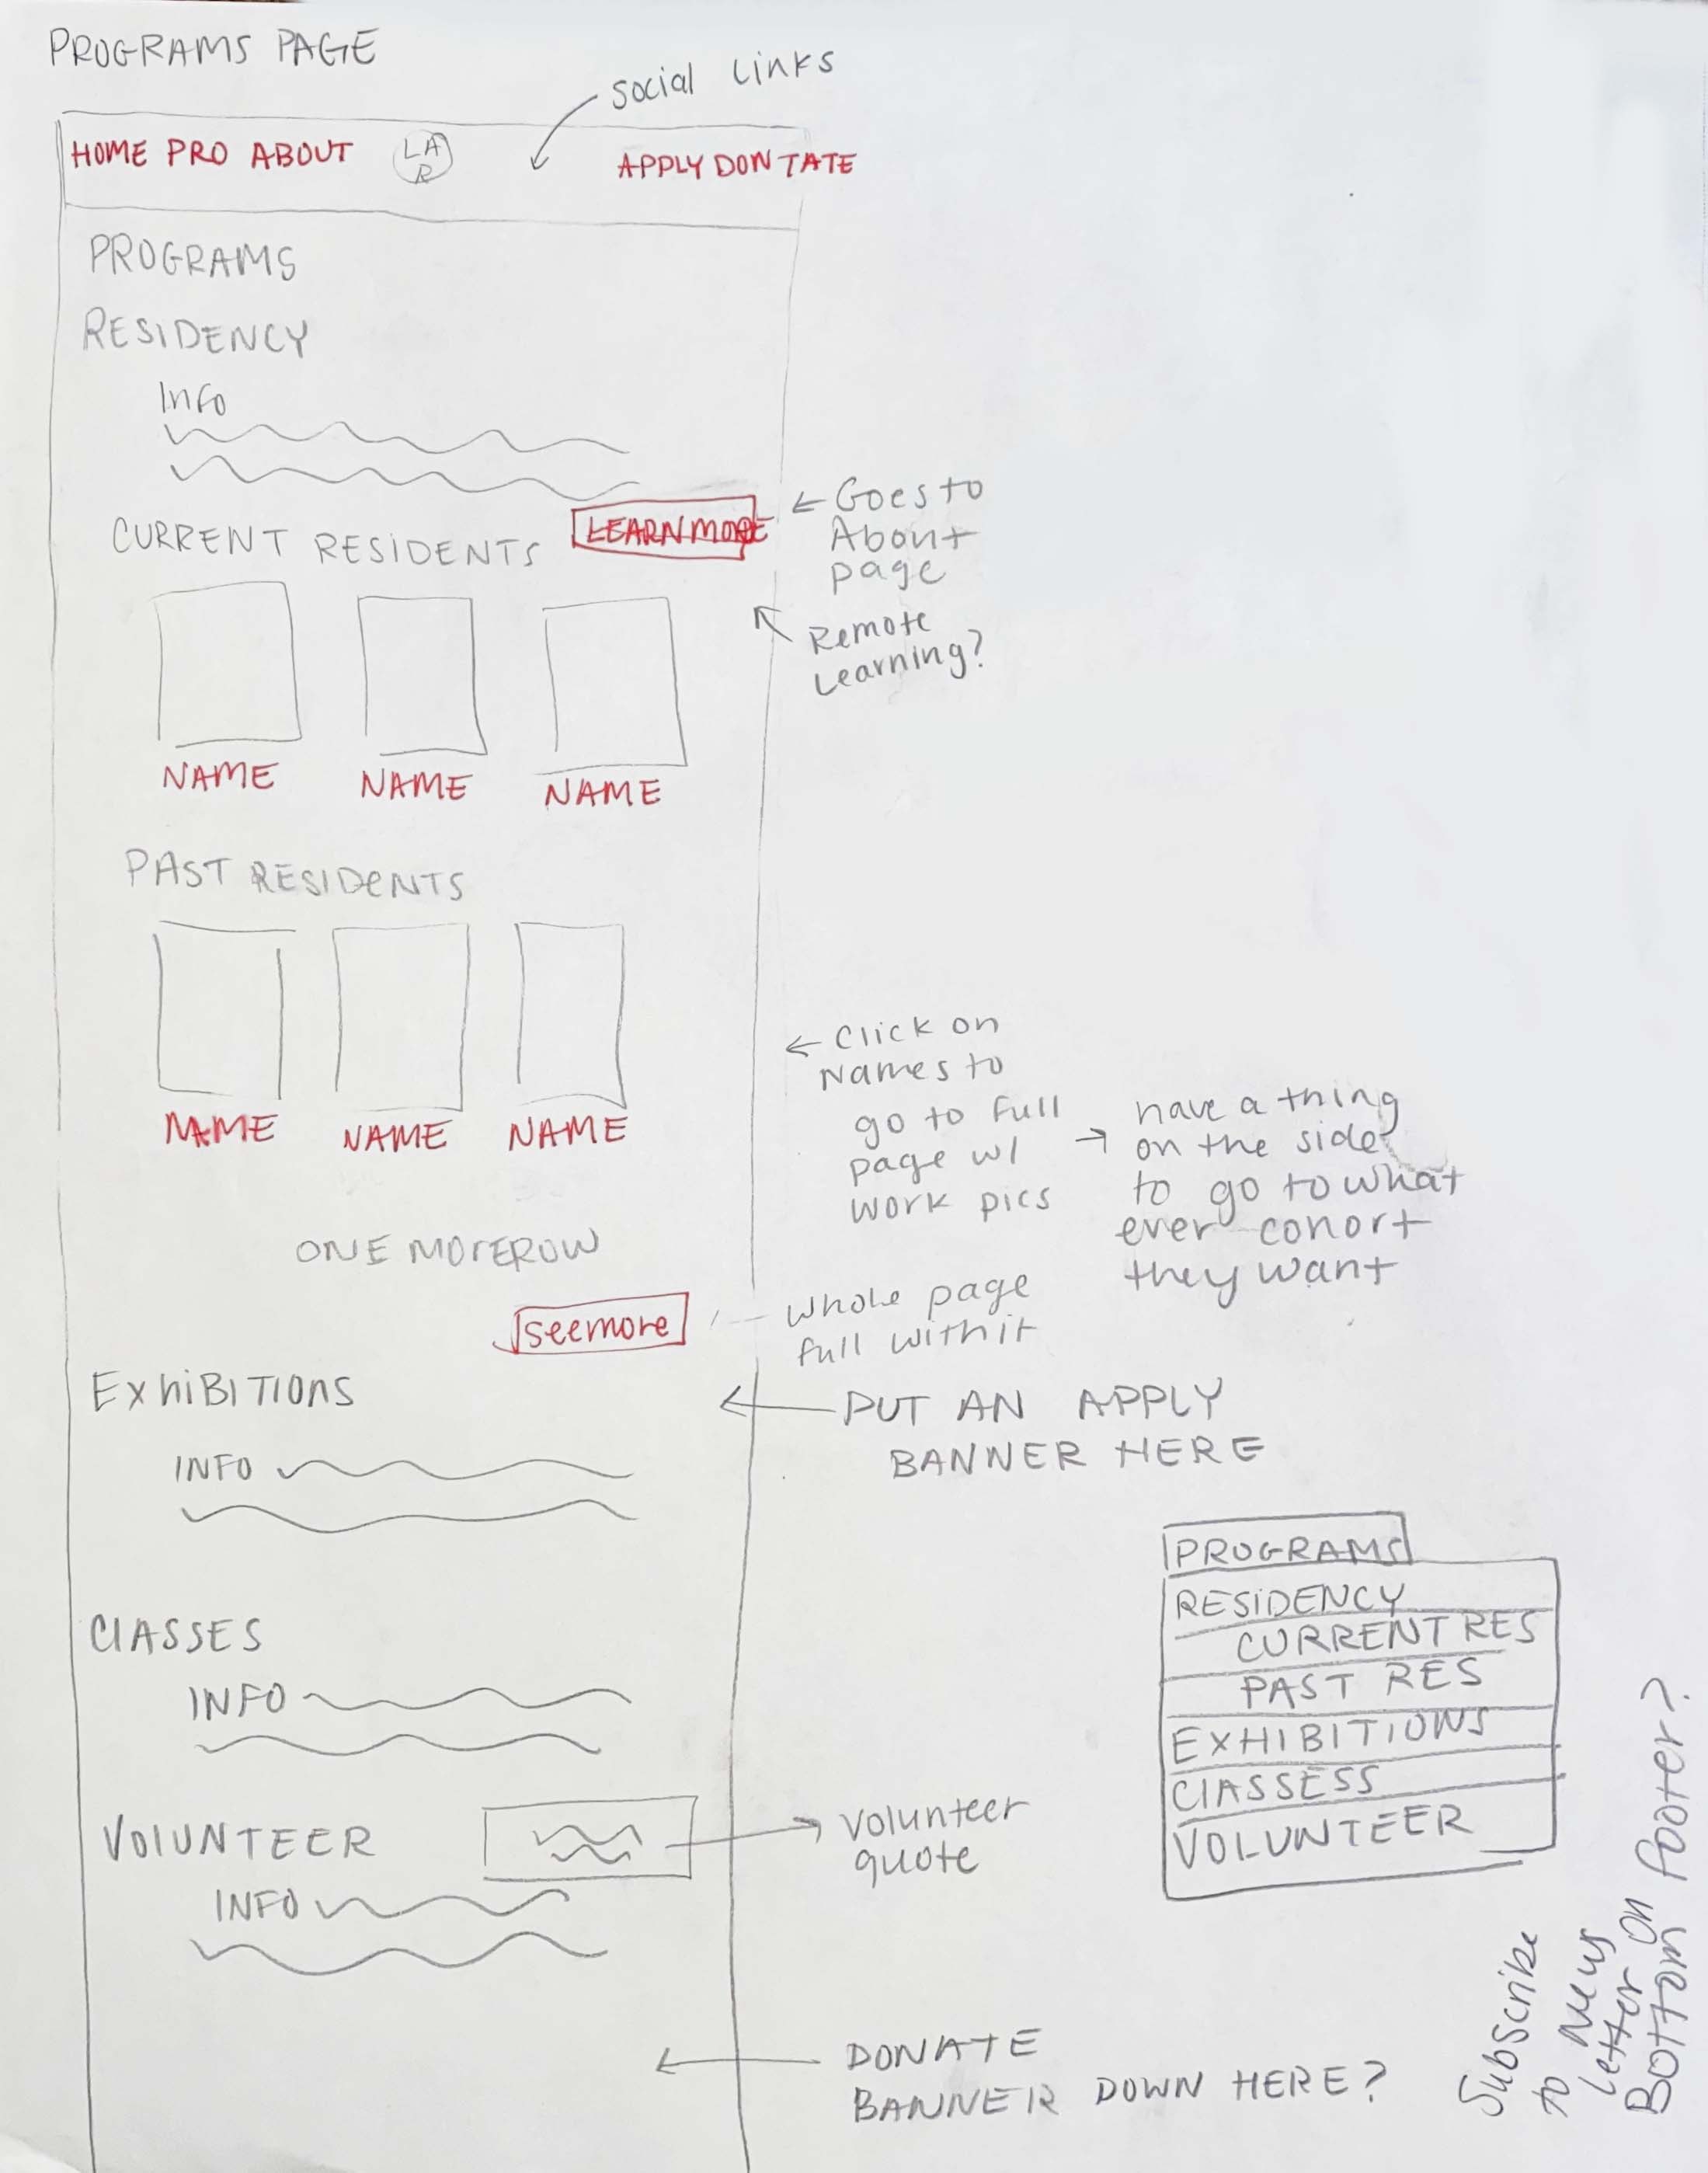 PROGRAMS PAGE
social links
HOME PRO ABOUT
LA
R
APPLY DONTATE
PROGRAMS
RESIDENCY
Info
CURRENT RESIDENTS
LEARN MORE
← Goes to
About
page
Remote
Learning?
NAME
NAME
NAME
PAST RESIDENTS
NAME
NAME
NAME
← Click on
Names to
go to full
page w/
work pics
→ have a thing
on the side
to go to what
ever cohort
they want
ONE MOrE ROW
see more
whole page
full with it
ExhiBITIOns
← PUT AN APPLY
BANNER HERE
INFO
ClASSES
INFO
VOlUNTEER
volunteer
quote
INFO
DONATE
BANNER DOWN HERE?
PROGRAMS
RESIDENCY
CURRENT RES
PAST RES
EXHIBITIONS
ClASSESS
VOLUNTEER
Subscribe
to news
letter on
Bottom footer?